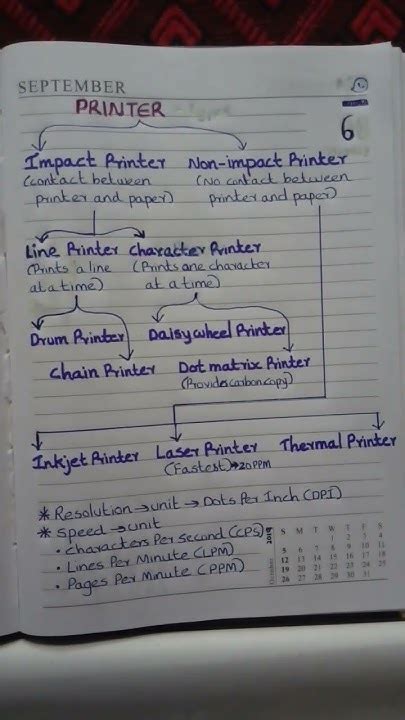 SEPTEMBER
PRINTER
6
Impact Printer Non-impact Printer
(contact between (No contact between
printer and paper) printer and paper)
Line Printer Character Printer
(Prints a line (Prints one character
at a time) at a time)
Drum Printer Daisywheel Printer
Chain Printer Dot matrix Printer
(Provides carbon copy)
Inkjet Printer Laser Printer Thermal Printer
(Fastest)→20PPM
* Resolution → unit → Dots Per Inch (DPI)
* Speed → unit
• Characters Per Second (CPS)
• Lines Per Minute (LPM)
• Pages Per Minute (PPM)
October
S M T W T F S
1 2 3 4
5 6 7 8 9 10 11
12 13 14 15 16 17 18
19 20 21 22 23 24 25
26 27 28 29 30 31